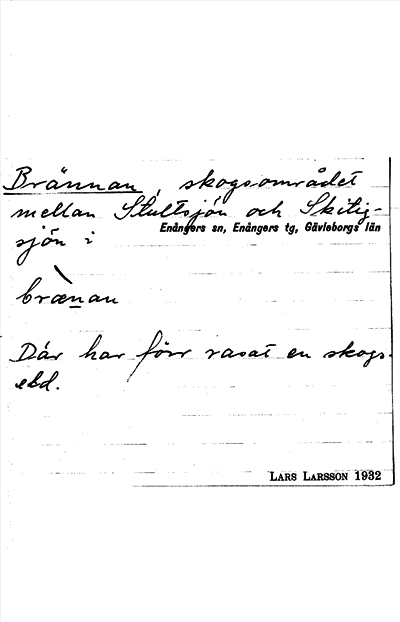 Brännan, skogsområdet
mellan Stultsjön och Skitig-
Enångers sn, Enångers tg, Gävleborgs län
sjön i
brænan
Där har förr rasat en skogs-
eld.
LARS LARSSON 1932